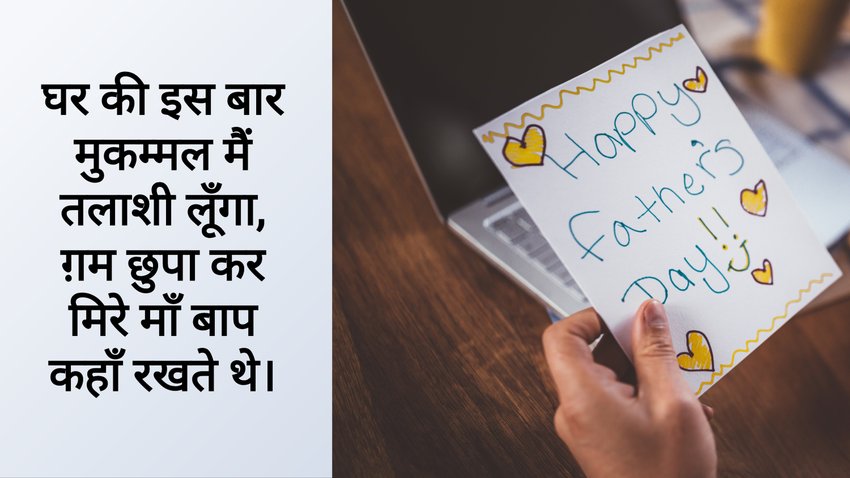 घर की इस बार
मुकम्मल मैं
तलाशी लूँगा,
ग़म छुपा कर
मिरे माँ बाप
कहाँ रखते थे।
Happy
Father's
Day!!